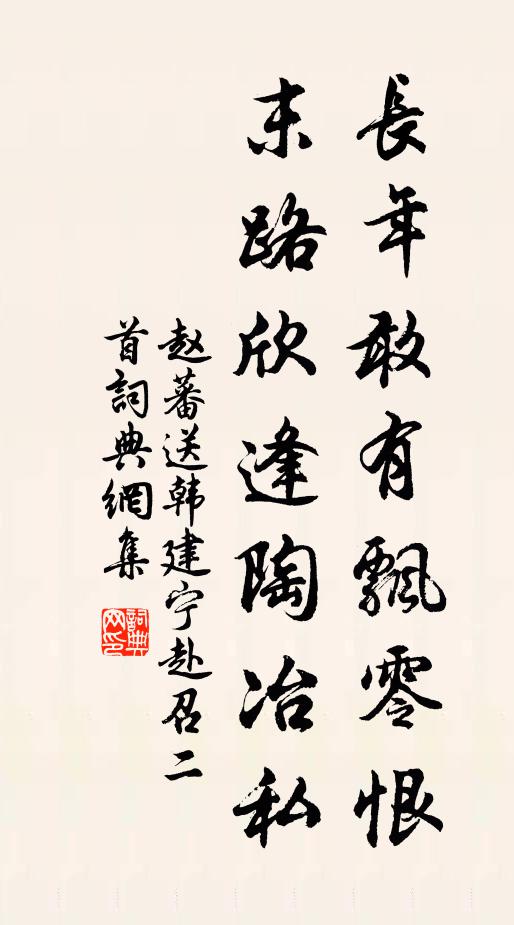 長年敢有飄零恨
末路欣逢陶冶私
赵蕃送韩建宁赴召二
首詞典網集
詞典
网印